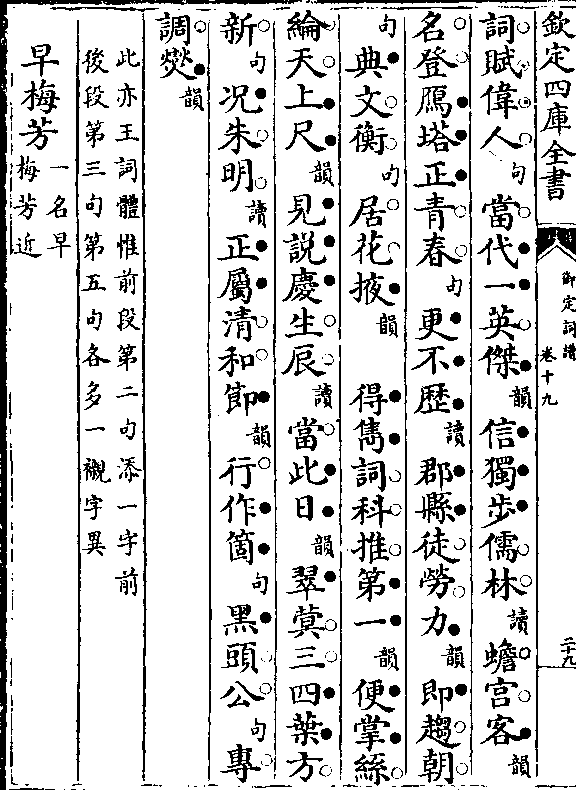 欽定四庫全書
御定詞譜
卷十九
二十九
詞賦偉人句當代一英傑韻信獨步儒林讀蟾宫客韻
名登鴈塔正青春句更不歷讀郡縣徒勞力韻即趨朝
句典文衡句居花掖韻　得雋詞科推第一韻便掌絲
綸天上尺韻見說慶生辰讀當此日韻翠蓂三四葉方
新句況朱明讀正屬清和節韻行作箇句黑頭公句專
調爕韻
此亦王詞體惟前段第二句添一字前
後段第三句第五句各多一襯字異
早梅芳一名早
梅芳近